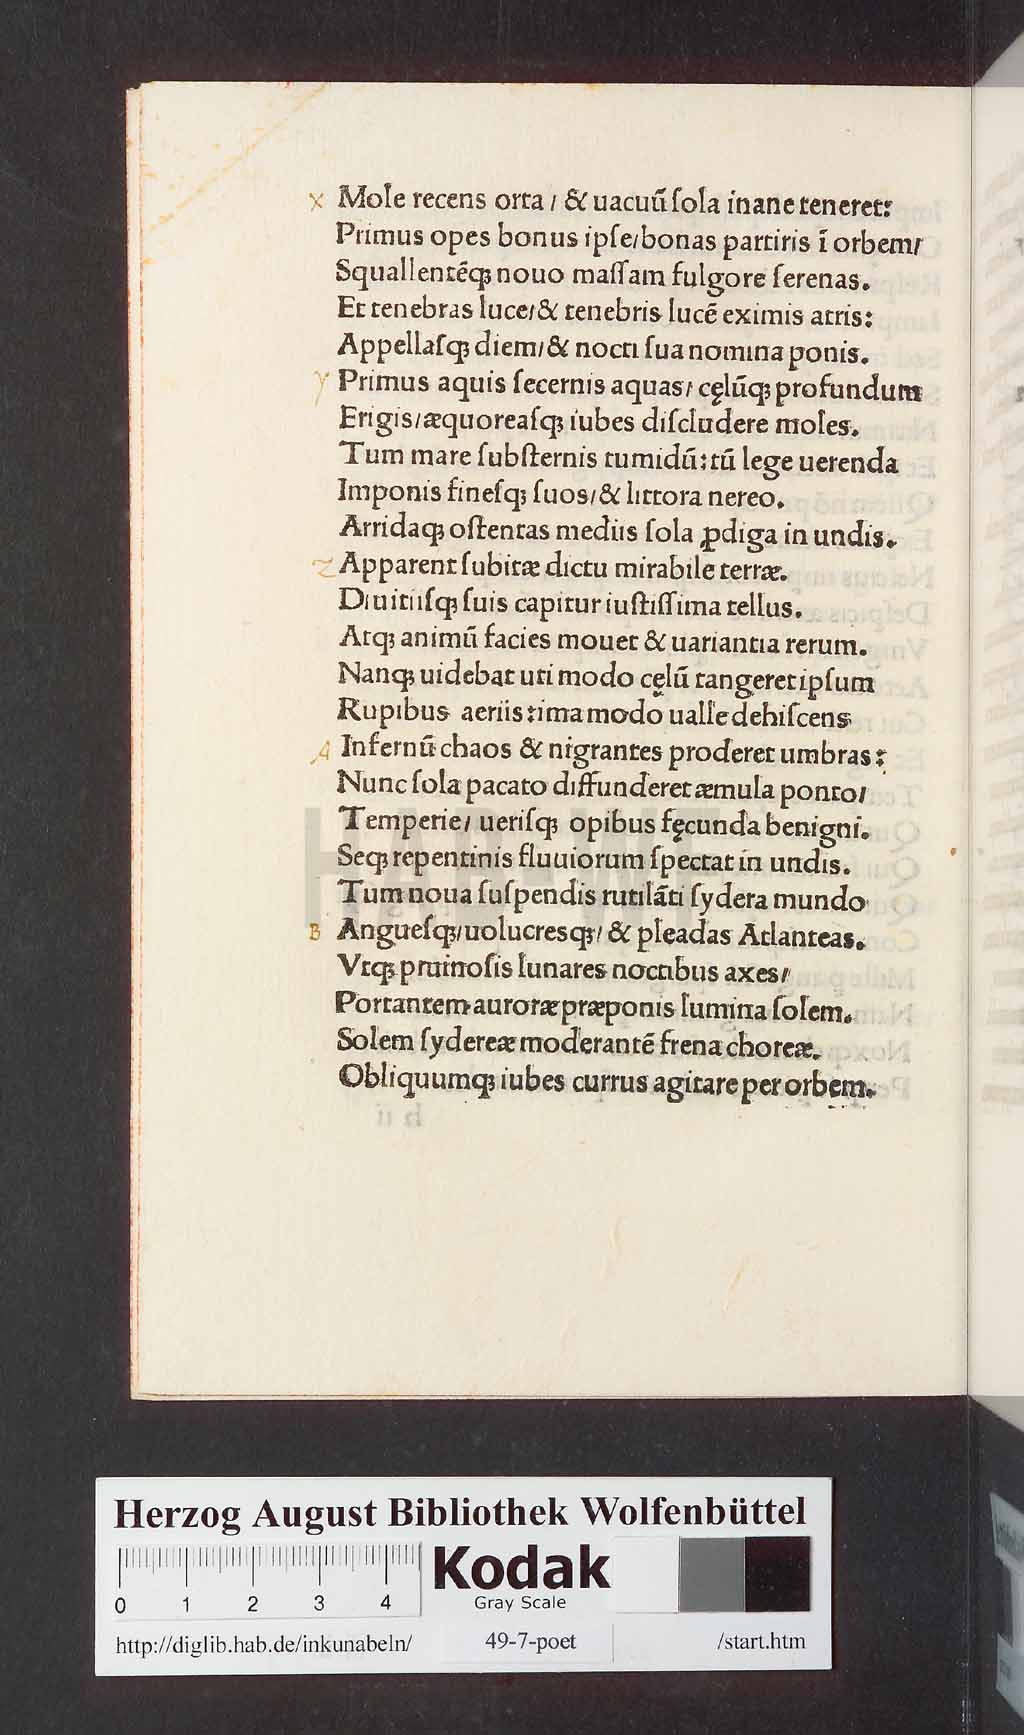 x Mole recens orta / & uacuū ſola inane teneret:
Primus opes bonus ipſe/bonas partiris ī orbem/
Squallentēq; nouo maſſam fulgore ſerenas.
Et tenebras luce/& tenebris lucē eximis atris:
Appellaſq; diem/& nocti ſua nomina ponis.
y Primus aquis ſecernis aquas/ cęlūq; profundum
Erigis/æquoreaſq; iubes diſcludere moles.
Tum mare ſubſternis tumidū:tū lege uerenda
Imponis fineſq; ſuos/& littora nereo.
Arridaq; oſtentas mediis ſola ꝓdiga in undis.
z Apparent ſubitæ dictu mirabile terræ.
Diuitiiſq; ſuis capitur iuſtiſſima tellus.
Atq; animū facies mouet & uariantia rerum.
Nanq; uidebat uti modo cęlū tangeret ipſum
Rupibus aeriis:ima modo ualle dehiſcens
A Infernū chaos & nigrantes proderet umbras:
Nunc ſola pacato diffunderet æmula ponto/
Temperie/ ueriſq; opibus fęcunda benigni.
Seq; repentinis fluuiorum ſpectat in undis.
Tum noua ſuſpendis rutilāti ſydera mundo
B Angueſq;/uolucresq;/ & pleadas Atlanteas.
Vtq; pruinoſis lunares noctibus axes/
Portantem auroræ præponis lumina ſolem.
Solem ſydereæ moderantē frena choreæ.
Obliquumq; iubes currus agitare per orbem.
h ii
HAB-WF
Herzog August Bibliothek Wolfenbüttel
0 1 2 3 4
Kodak
Gray Scale
http://diglib.hab.de/inkunabeln/ 49-7-poet /start.htm